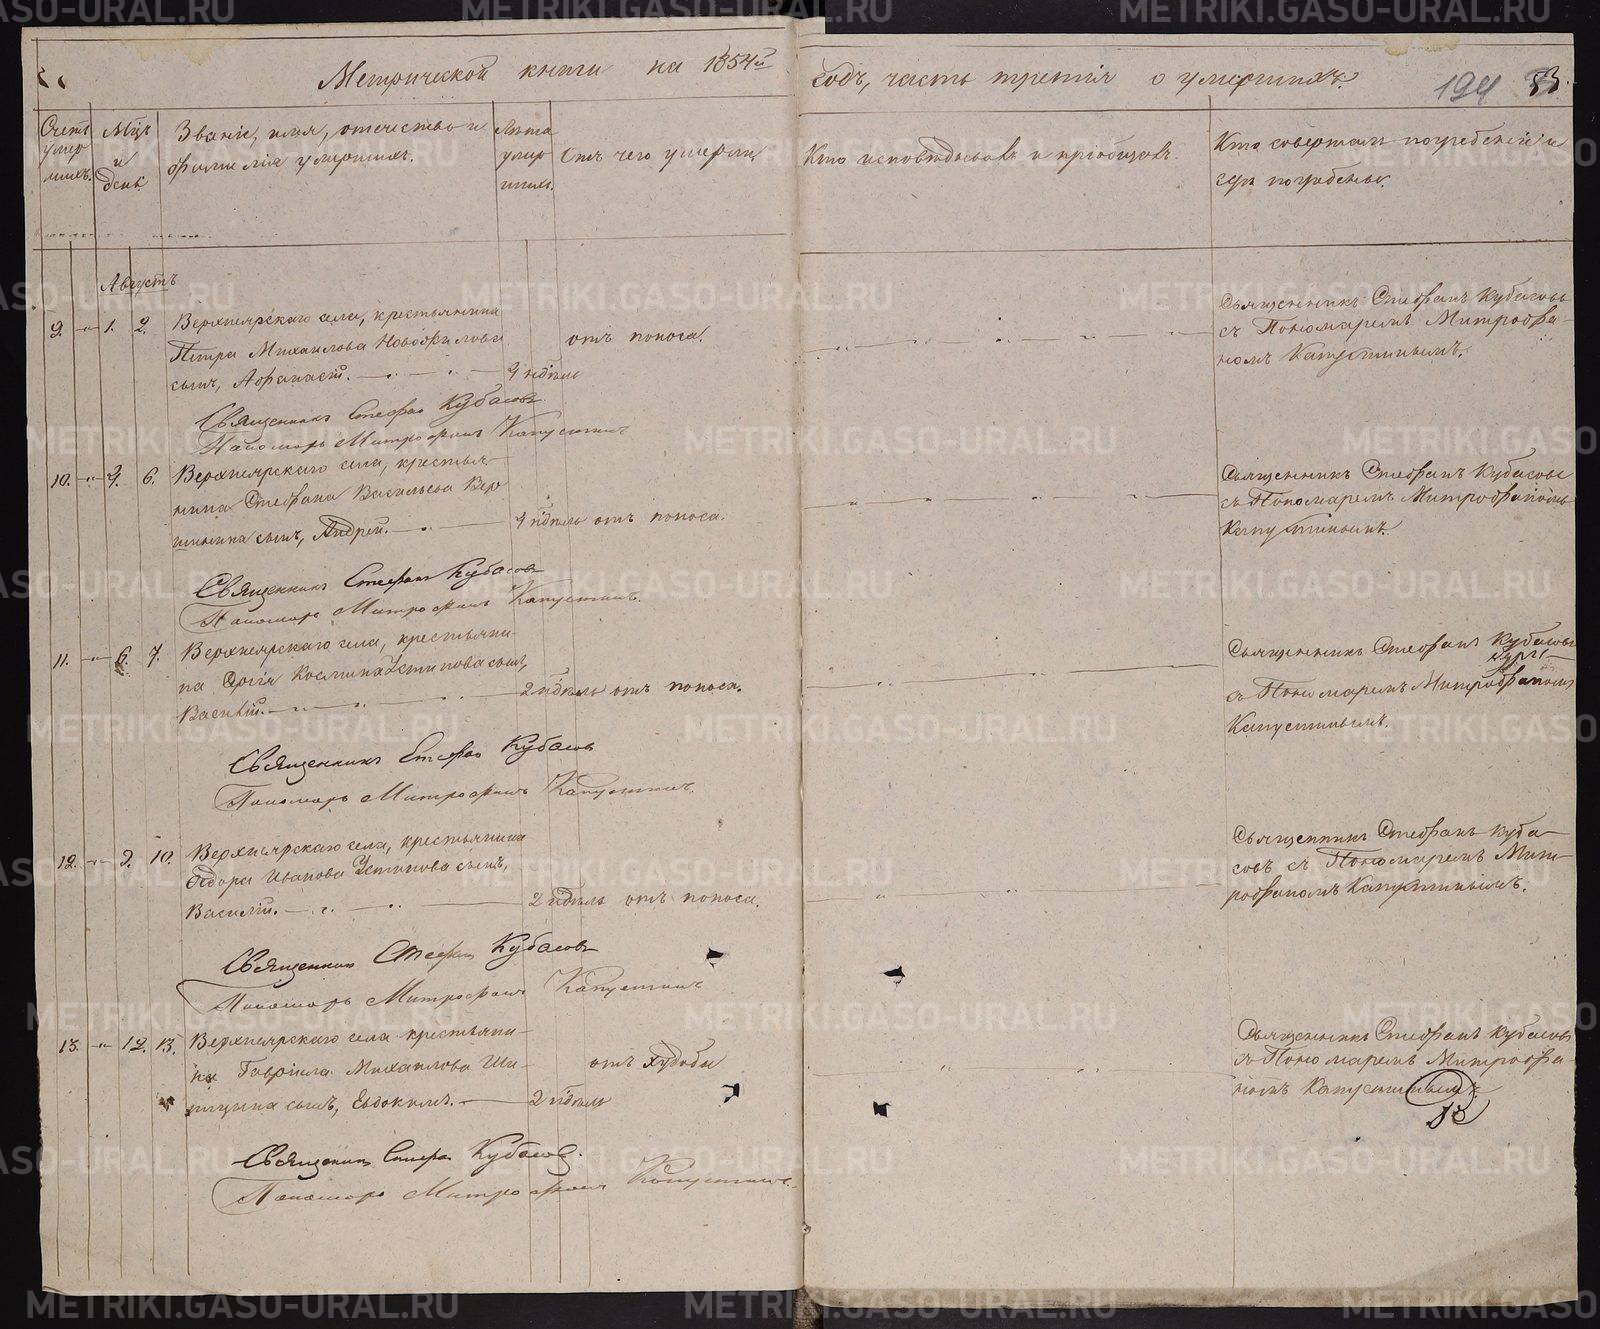 Метрической книги на 1854й годъ, часть третія о умершихъ.
194
Счетъ умершихъ.
Мцъ и день.
Званіе, имя, отечество и
фамилія умершихъ.
Лѣта умершихъ.
Отъ чего умерли
Кто исповѣдывалъ и пріобщалъ.
Кто совершалъ погребеніе и
гдѣ погребены.
Августъ
9. 1. 2. Верхнеярскаго села, крестьянина
Петра Михаилова
сынъ, Афанасій. нѣдѣль
отъ поноса.
Священникъ Стефанъ Кубасовъ
съ Пономаремъ Митрофа-
номъ Капустинымъ.
Священникъ Стефанъ Кубасовъ
Пономарь Митрофанъ Капустинъ
10. 6. Верхнеярскаго села, крестья-
нина Стефана Васильева Вер
шинина сынъ, Андрей. нѣдѣль отъ поноса.
Священникъ Стефанъ Кубасовъ
съ Пономаремъ Митрофаномъ
Капустинымъ.
Священникъ Стефанъ Кубасовъ
Пономарь Митрофанъ Капустинъ.
11. 6. 7. Верхнеярскаго села, крестьяни-
на Космина Устинова сынъ,
Василій. 2 нѣдѣль отъ поноса.
Священникъ Стефанъ Кубасовъ
съ Пономаремъ Митрофаномъ
Капустинымъ.
Священникъ Стефанъ Кубасовъ
Пономарь Митрофанъ Капустинъ.
12. 9. 10. Верхнеярскаго села, крестьянина
Ѳедора Иванова Устинова сынъ,
Василій. 2 нѣдѣль отъ поноса.
Священникъ Стефанъ Куба-
совъ съ Пономаремъ Мит-
рофаномъ Капустинымъ.
Священникъ Стефанъ Кубасовъ
Пономарь Митрофанъ Капустинъ
13. 12. 13. Верхнеярскаго села крестьяни-
на Гавріила Михаилова Ши-
пицына сынъ, Евдокимъ. 2 нѣдѣль
отъ худобы
Священникъ Стефанъ Кубасовъ
съ Пономаремъ Митрофа-
номъ Капустинымъ.
Священникъ Стефанъ Кубасовъ.
Пономарь Митрофанъ Капустинъ.
METRIKI.GASO-URAL.RU